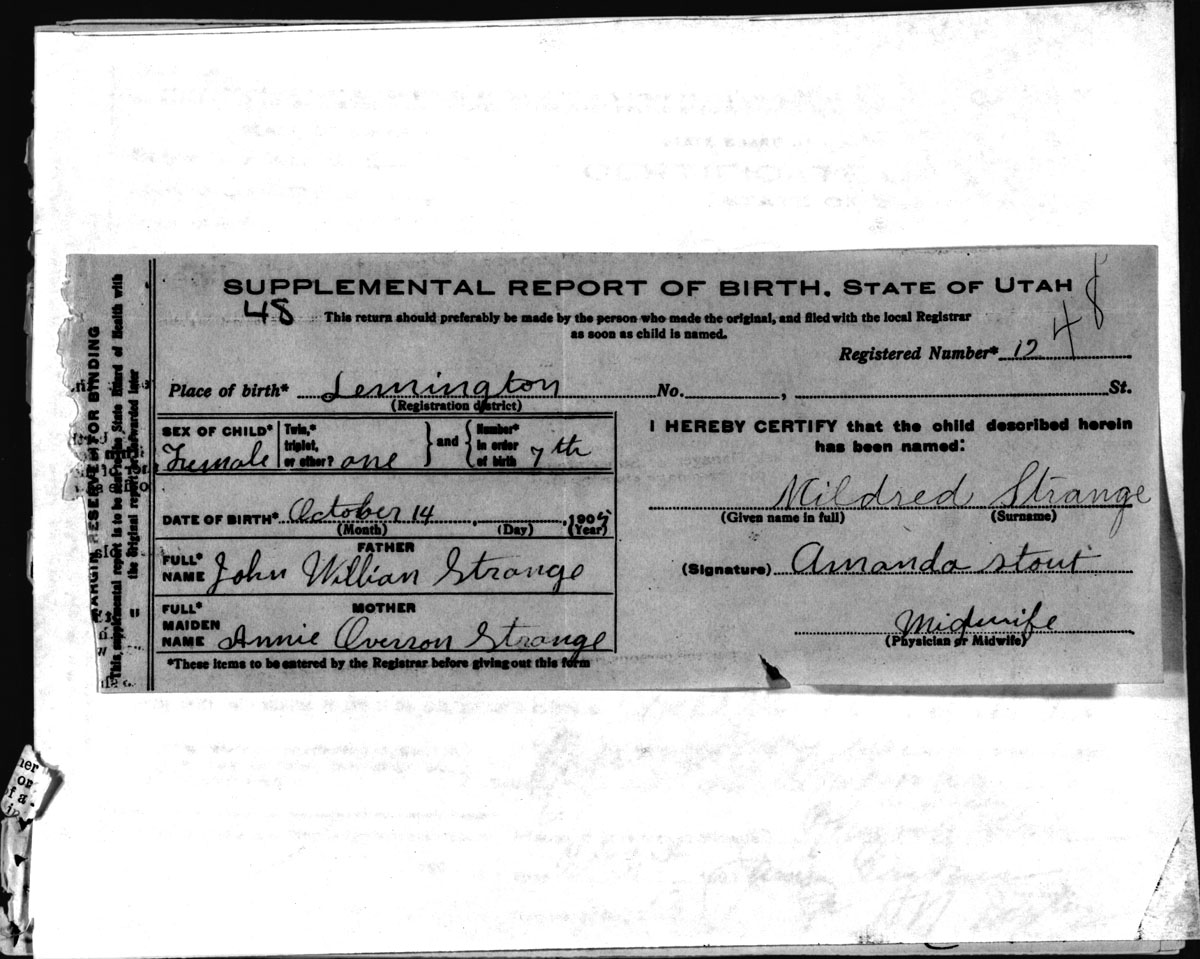 SUPPLEMENTAL REPORT OF BIRTH. STATE OF UTAH
48
48
This return should preferably be made by the person who made the original, and filed with the local Registrar
as soon as child is named.
Registered Number* 12
Place of birth* Lemington No. , St.
(Registration district)
SEX OF CHILD* Female
Twin,* triplet, or other? one } and { Number* in order of birth 7th
DATE OF BIRTH* October 14 , 190
(Month) (Day) (Year)
FATHER
FULL* NAME John Willian Strange
MOTHER
FULL* MAIDEN NAME Annie Overson Strange
*These items to be entered by the Registrar before giving out this form
I HEREBY CERTIFY that the child described herein
has been named:
Mildred Strange
(Given name in full) (Surname)
(Signature) Amanda Stout
Midwife
(Physician or Midwife)
MARGIN RESERVED FOR BINDING
This supplemental report is to be filed the State Board of Health with
the original report forwarded later
her
or
of a